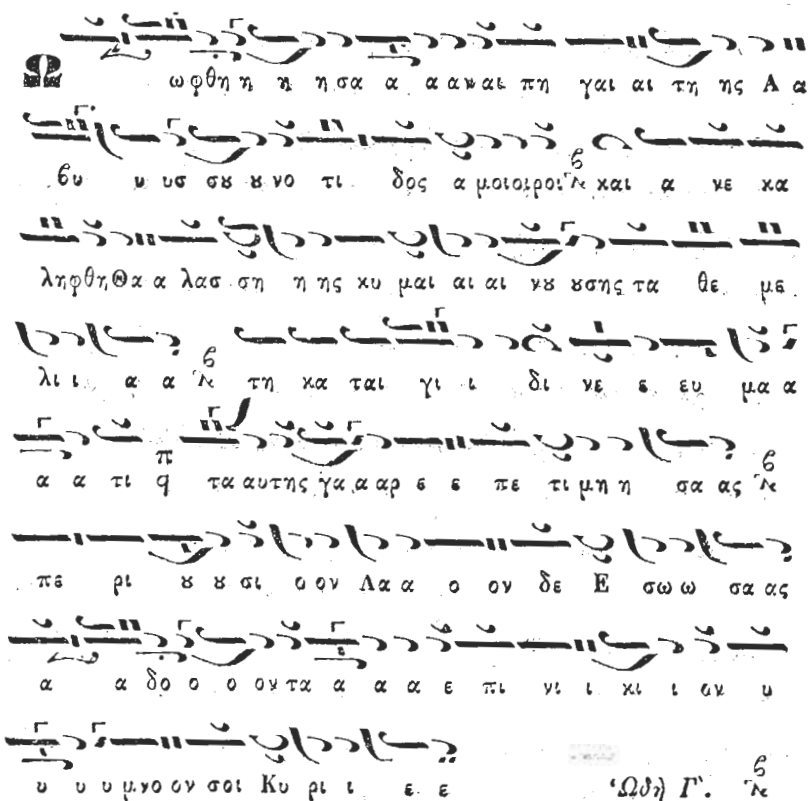 Ω ωφθη η η η σα α α αν και πη γαι αι τη ης Α α
βυ υ υσ σου ου νο τι δος α μοιοιροι και α νε κα
ληφθη Θα α λασ ση η ης κυ μαι αι αι νου ουσης τα θε με
λι ι α α τη κα ται γι ι δι νε ε ευ μα α
α α τι π q τα αυτης γα α αρ ε ε πε τι μη η σα ας
πε ρι ου ου σι ο ον Λα α ο ον δε Ε σω ω σα ας
α α δο ο ο ον τα α α α ε πι νι ι κι ι ον υ
υ υ υ μνο ον σοι Κυ ρι ι ε ε Ὠδὴ Γ΄.